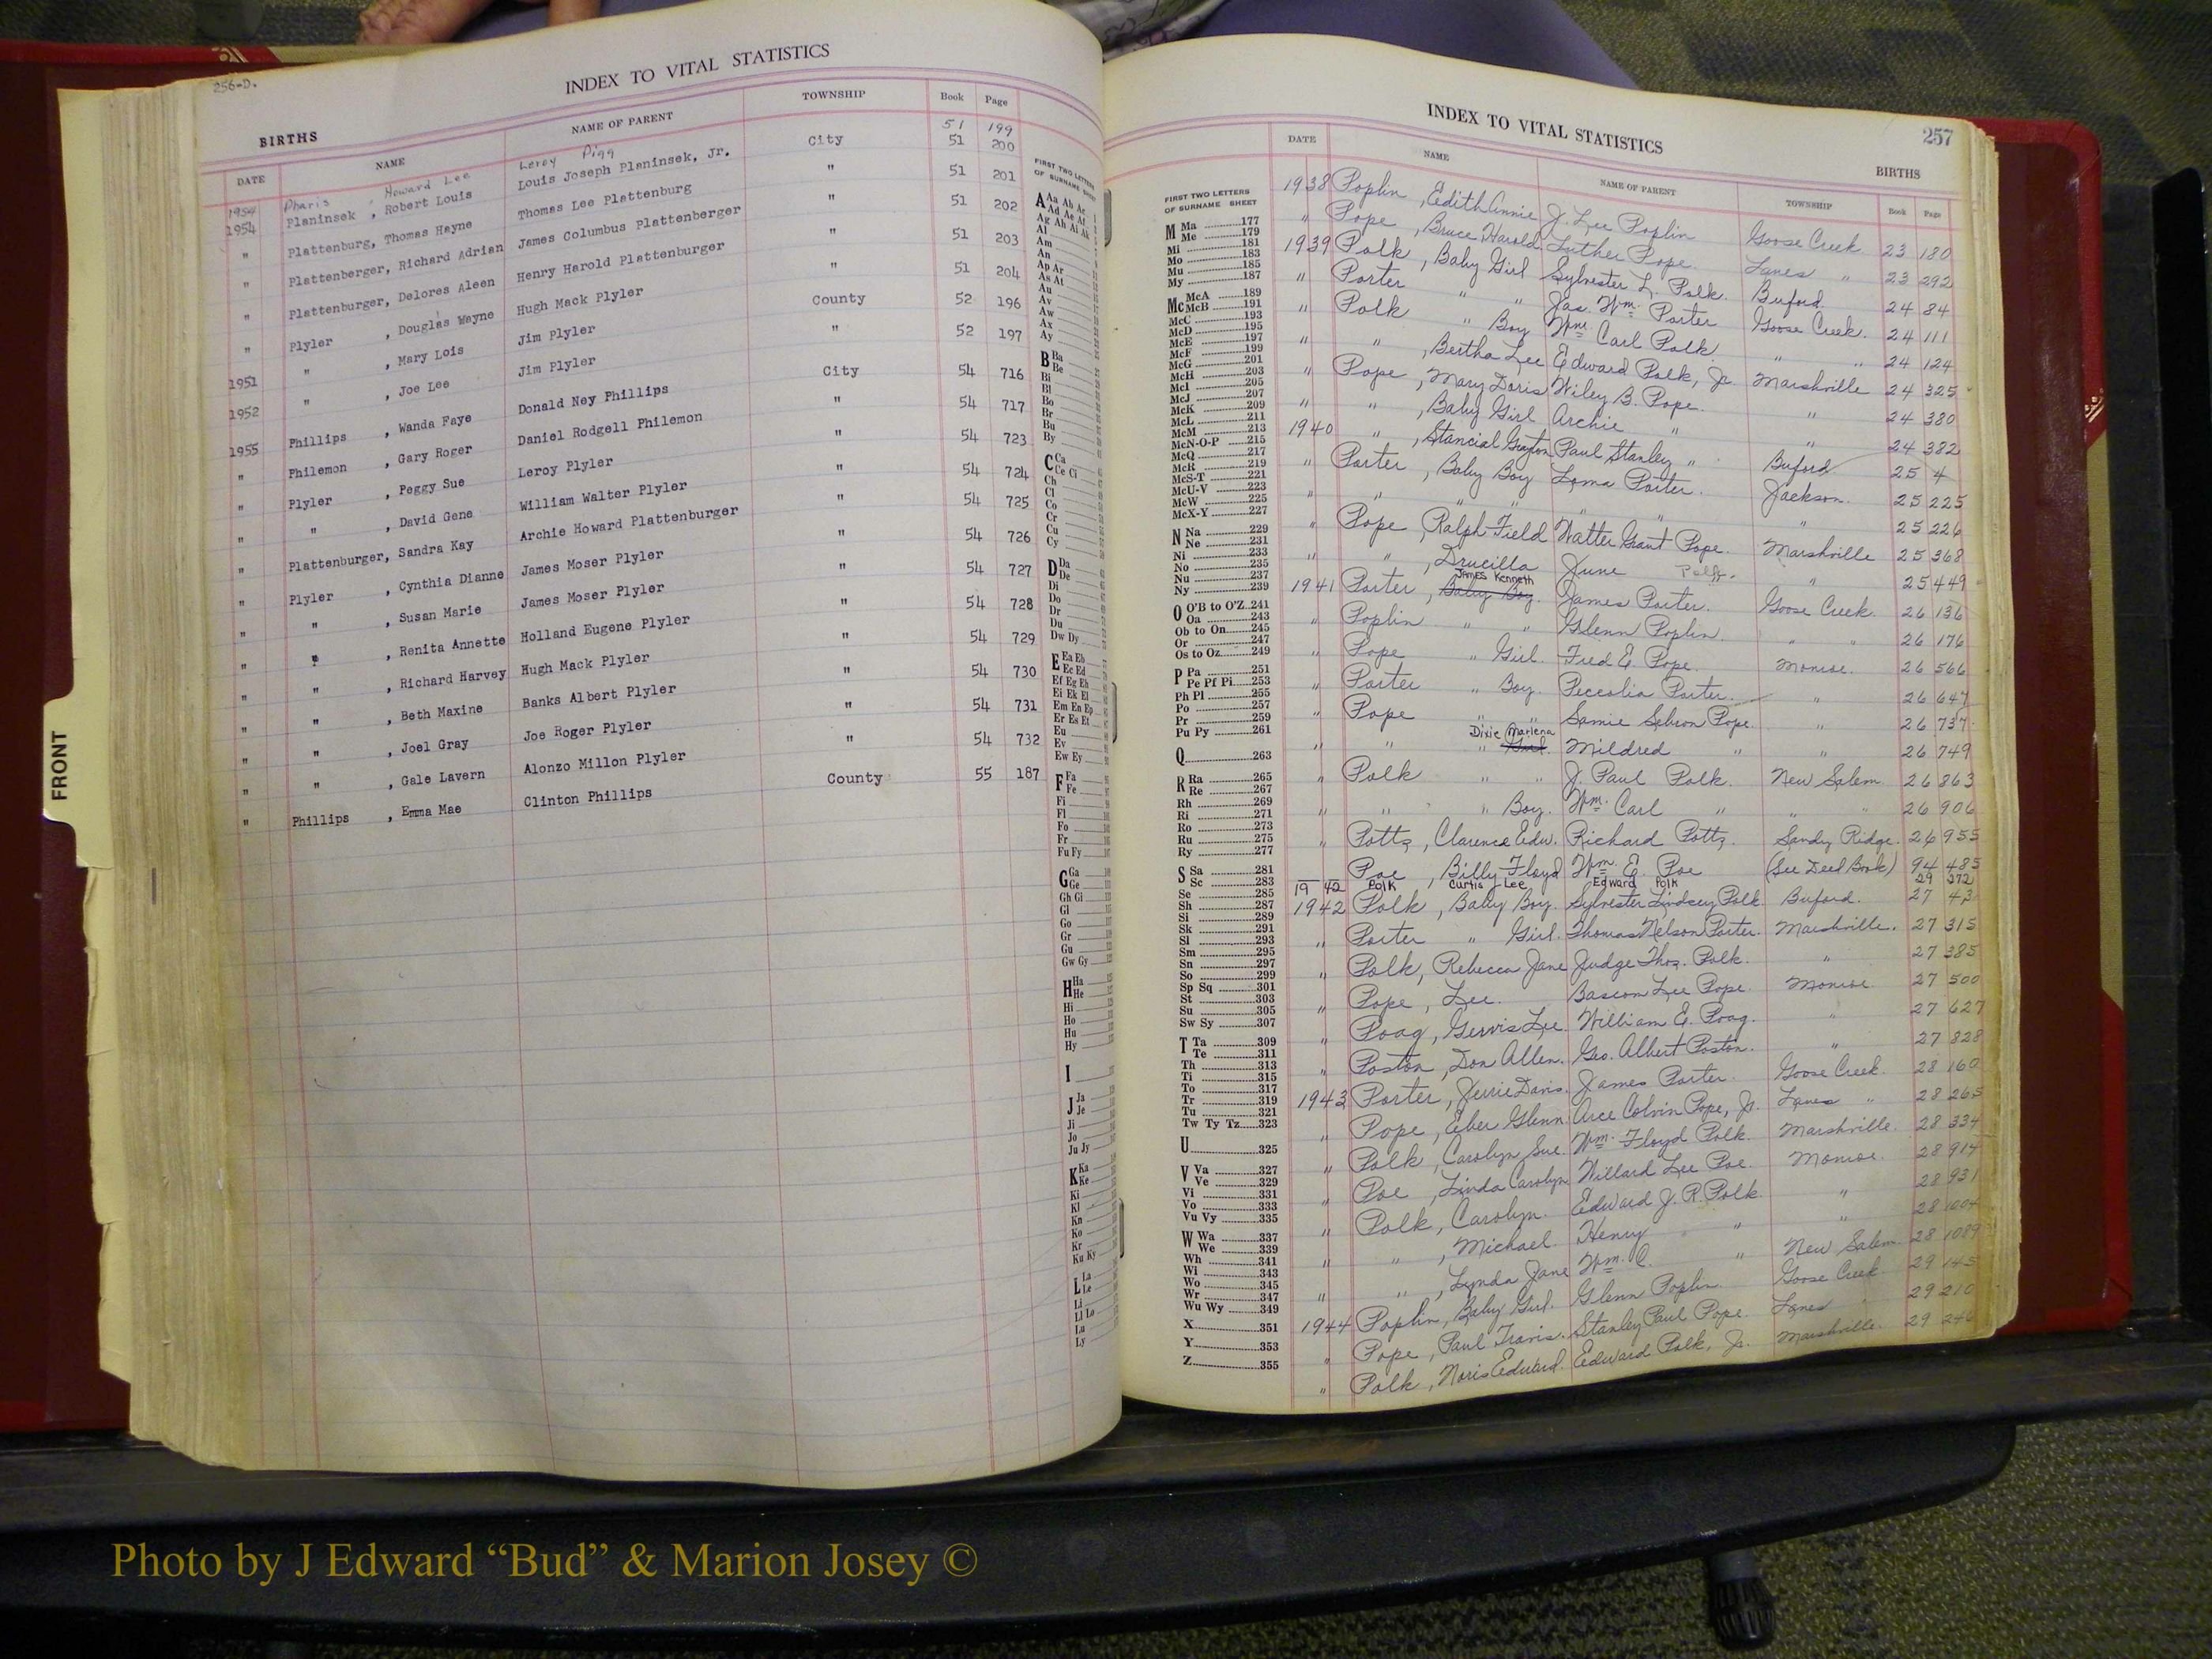 256-D.
INDEX TO VITAL STATISTICS
BIRTHS
DATE NAME NAME OF PARENT TOWNSHIP Book Page
1954 Pharis , Howard Lee Leroy Pigg 51 199
1954 Planinsek , Robert Louis Louis Joseph Planinsek, Jr. City 51 200
" Plattenburg, Thomas Hayne Thomas Lee Plattenburg " 51 201
" Plattenberger, Richard Adrian James Columbus Plattenberger " 51 202
" Plattenburger, Delores Aleen Henry Harold Plattenburger " 51 203
" Plyler , Douglas Wayne Hugh Mack Plyler " 51 204
1951 " , Mary Lois Jim Plyler County 52 196
1952 " , Joe Lee Jim Plyler " 52 197
1955 Phillips , Wanda Faye Donald Ney Phillips City 54 716
" Philemon , Gary Roger Daniel Rodgell Philemon " 54 717
" Plyler , Peggy Sue Leroy Plyler " 54 723
" " , David Gene William Walter Plyler " 54 724
" Plattenburger, Sandra Kay Archie Howard Plattenburger " 54 725
" Plyler , Cynthia Dianne James Moser Plyler " 54 726
" " , Susan Marie James Moser Plyler " 54 727
" " , Renita Annette Holland Eugene Plyler " 54 728
" " , Richard Harvey Hugh Mack Plyler " 54 729
" " , Beth Maxine Banks Albert Plyler " 54 730
" " , Joel Gray Joe Roger Plyler " 54 731
" " , Gale Lavern Alonzo Millon Plyler " 54 732
" Phillips , Emma Mae Clinton Phillips County 55 187
FRONT
FIRST TWO LETTERS
OF SURNAME SHEET
A Aa Ab Ac
Ad Ae Af
Ag Ah Ai Ak
Al
Am
An
Ap Ar
As At
Au
Av
Aw
Ax
Ay
B Ba
Be
Bi
Bl
Bo
Br
Bu
By
C Ca
Ce Ci
Ch
Cl
Co
Cr
Cu
Cy
D Da
De
Di
Do
Dr
Du
Dw Dy
E Ea Eb
Ec Ed
Ef Eg Eh
Ei Ek El
Em En Ep
Er Es Et
Eu
Ev
Ew Ey
F Fa
Fe
Fi
Fl
Fo
Fr
Fu Fy
G Ga
Ge
Gh Gi
Gl
Go
Gr
Gu
Gw Gy
H Ha
He
Hi
Ho
Hu
Hy
I
J Ja
Je
Ji
Jo
Ju Jy
K Ka
Ke
Ki
Kl
Kn
Ko
Kr
Ku Ky
L La
Le
Li
Ll Lo
Lu
Ly
INDEX TO VITAL STATISTICS 257
BIRTHS
FIRST TWO LETTERS
OF SURNAME SHEET
M Ma 177
Me 179
Mi 181
Mo 183
Mu 185
My 187
Mc McA 189
McB 191
McC 193
McD 195
McE 197
McF 199
McG 201
McH 203
McI 205
McJ 207
McK 209
McL 211
McM 213
McN-O-P 215
McQ 217
McR 219
McS-T 221
McU-V 223
McW 225
McX-Y 227
N Na 229
Ne 231
Ni 233
No 235
Nu 237
Ny 239
O O'B to O'Z 241
Oa 243
Ob to On 245
Or 247
Os to Oz 249
P Pa 251
Pe Pf Pi 253
Ph Pl 255
Po 257
Pr 259
Pu Py 261
Q 263
R Ra 265
Re 267
Rh 269
Ri 271
Ro 273
Ru 275
Ry 277
S Sa 281
Sc 283
Se 285
Sh 287
Si 289
Sk 291
Sl 293
Sm 295
Sn 297
So 299
Sp Sq 301
St 303
Su 305
Sw Sy 307
T Ta 309
Te 311
Th 313
Ti 315
To 317
Tr 319
Tu 321
Tw Ty Tz 323
U 325
V Va 327
Ve 329
Vi 331
Vo 333
Vu Vy 335
W Wa 337
We 339
Wh 341
Wi 343
Wo 345
Wr 347
Wu Wy 349
X 351
Y 353
Z 355
DATE NAME NAME OF PARENT TOWNSHIP Book Page
1938 Poplin , Edith Annie J. Lee Poplin Goose Creek 23 180
" Pope , Bruce Harold Luther Pope Lanes " 23 292
1939 Polk , Baby Girl Sylvester L. Polk. Buford 24 84
" Porter " " Jas. Wm. Porter Goose Creek. 24 111
" Polk " Boy Wm. Carl Polk " " 24 124
" " , Bertha Lee Edward Polk, Jr. Marshville 24 325
" Pope , Mary Doris Wiley B. Pope. " 24 380
" " , Baby Girl Archie " " 24 382
1940 " , Stancial Grayton Paul Stanley " Buford 25 4
" Porter , Baby Boy Loma Porter. Jackson. 25 225
" " " " " " " 25 226
" Pope , Ralph Field Watter Grant Pope. Marshville 25 368
" " , Drucilla June Polk. " 25 449
1941 Porter , Baby Boy. James Kenneth James Porter. Goose Creek. 26 136
" Poplin " " Glenn Poplin. " " 26 176
" Pope " Girl. Fred E. Pope. Monroe. 26 566
" Porter " Boy. Peccolia Porter. " 26 647
" Pope " " Samie Sebron Pope. " 26 737
" " " Girl. Dixie Marlena Mildred " " 26 749
" Polk " " J. Paul Polk. New Salem 26 863
" " " Boy. Wm. Carl " " " 26 906
" Potts , Clarence Edw. Richard Potts. Sandy Ridge. 26 955
Poe , Billy Floyd Wm. E. Poe (See Deed Book) 94 485
19 42 Polk Curtis Lee Edward Polk 29 372
1942 Polk , Baby Boy. Sylvester Lindsey Polk Buford. 27 43
" Porter " Girl. Thomas Nelson Porter. Marshville. 27 315
" Polk, Rebecca Jane Judge Thos. Polk. " 27 385
" Pope , Lee. Bascom Lee Pope. Monroe 27 500
" Poag, Gervis Lee. William E. Poag. " 27 627
" Poston , Don Allen. Geo. Albert Poston. " 27 828
1943 Porter , Jerrie Davis. James Porter. Goose Creek. 28 160
" Pope , Eber Glenn. Arce Colvin Pope, Jr. Lanes " 28 265
" Polk , Carolyn Sue. Wm. Floyd Polk. Marshville. 28 334
" Poe , Linda Carolyn Willard Lee Poe. Monroe. 28 914
" Polk , Carolyn. Edward J. R. Polk. " 28 931
" " , Michael. Henry " " 28 1004
" " , Lynda Jane Wm. C. " New Salem 28 1089
1944 Poplin, Baby Girl. Glenn Poplin. Goose Creek 29 145
" Pope , Paul Travis. Stanley Paul Pope. Lanes " 29 210
" Polk , Noris Edward. Edward Polk, Jr. Marshville. 29 246
Photo by J Edward “Bud” & Marion Josey ©